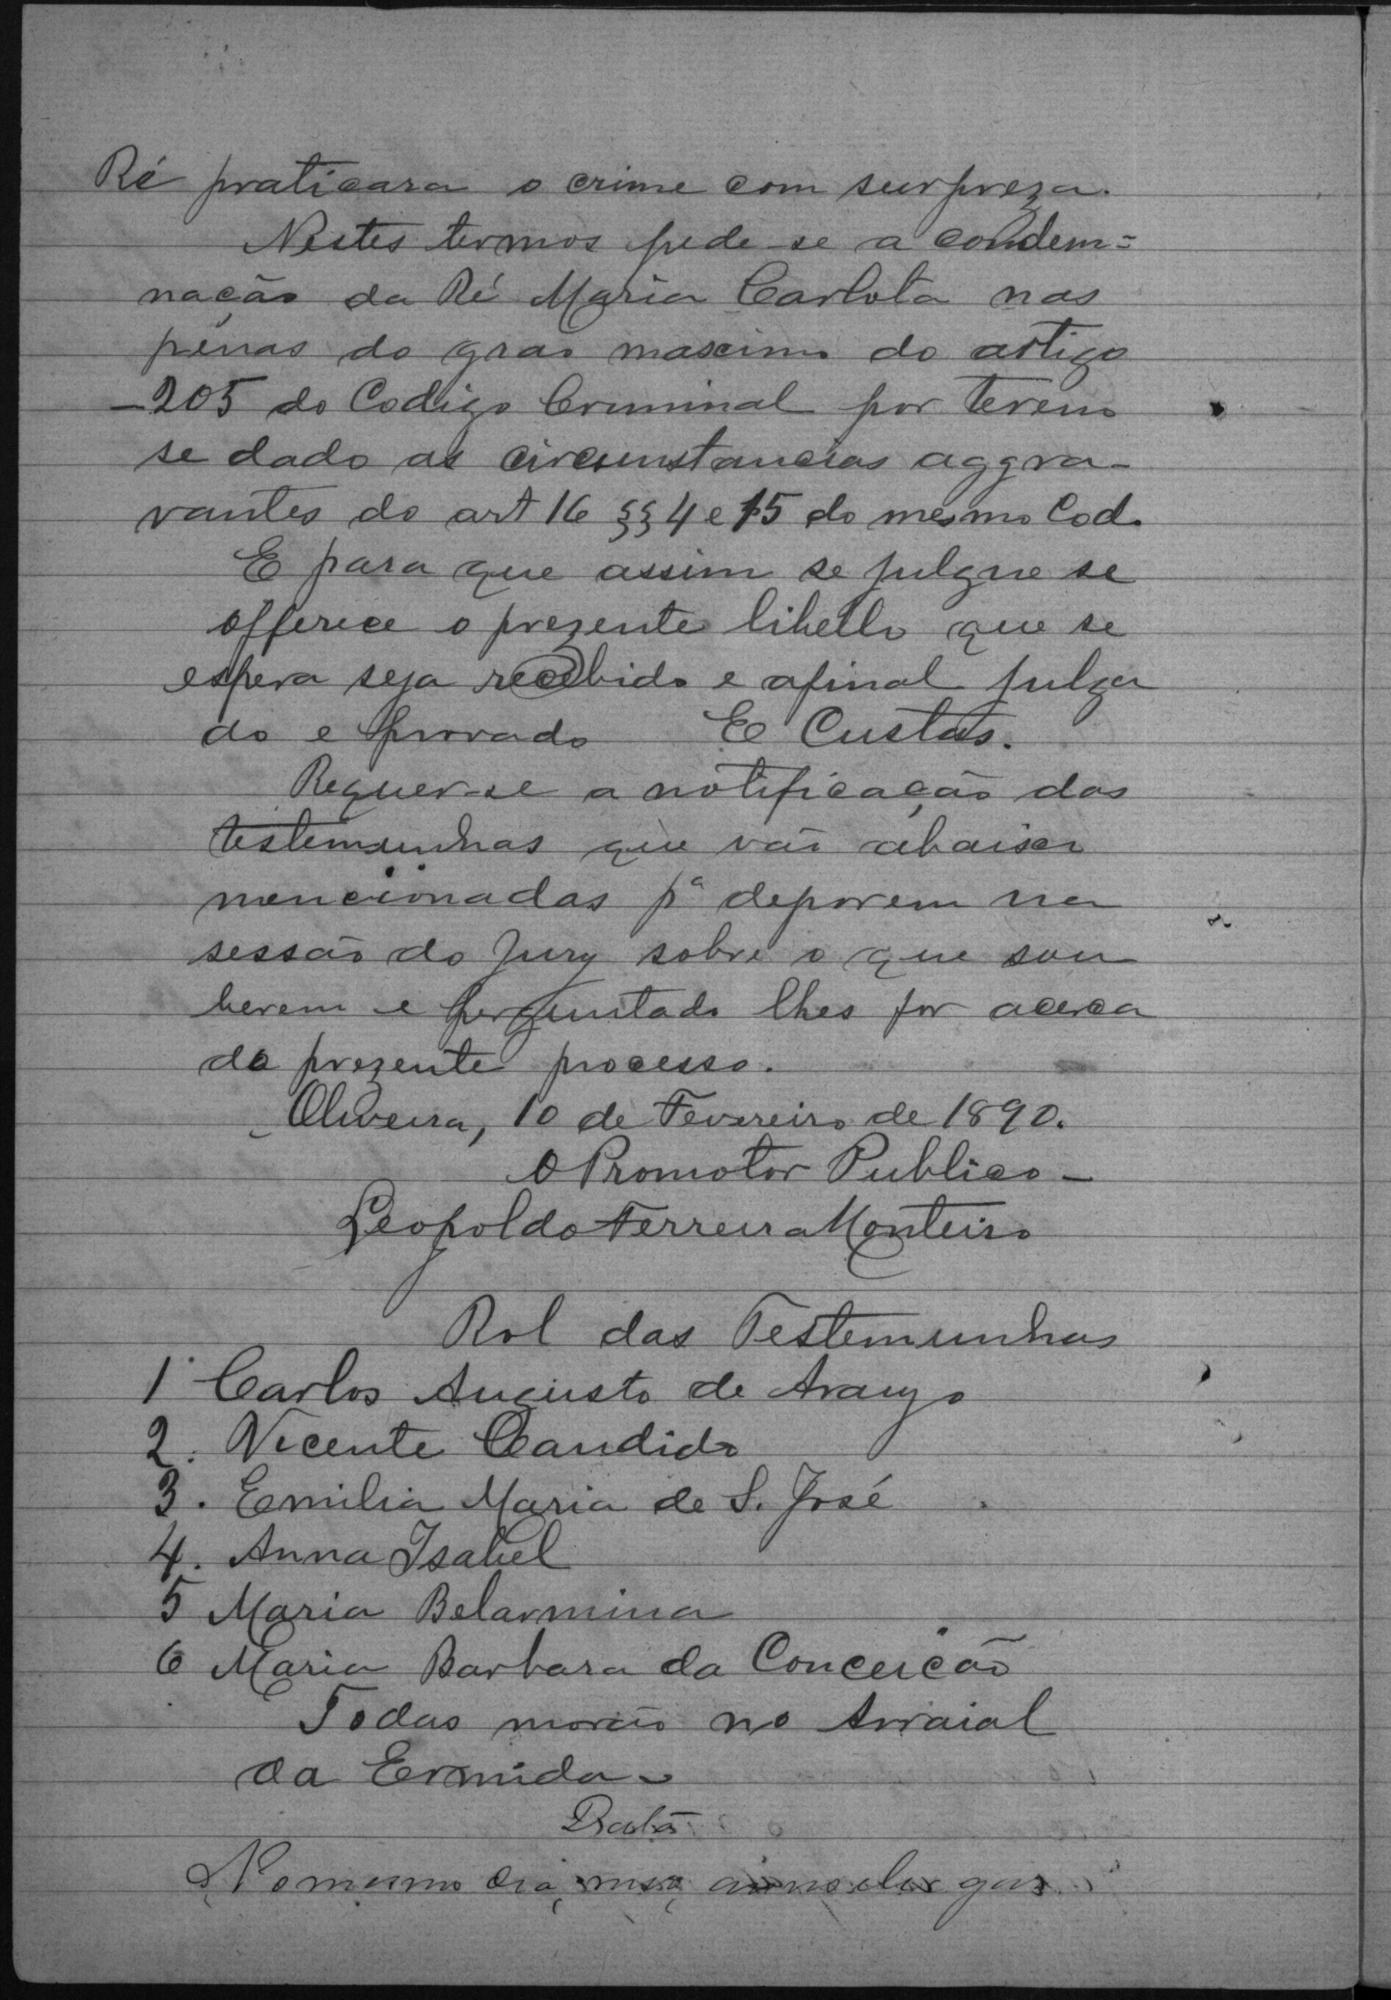 Ré praticara o crime com surpreza.
Nestes termos pede-se a condem=
nação da Ré Maria Carlota nas
penas do grao maximo do artigo
205 do Codigo Criminal por terem
se dado as circumstancias aggra-
vantes do art 16 §§ 4 e 15 do mesmo Cod.
E para que assim se julgue se
offerece o prezente libello que se
espera seja recebido e afinal julga
do e provado E Custas.
Requer-se a notificação das
testemunhas que vão abaixo
mencionadas pª deporem na
sessão do Jury sobre o que sou
berem e perguntado lhes for acerca
do prezente processo.
Oliveira, 10 de Fevereiro de 1890.
O Promotor Publico -
Leopoldo Ferreira Monteiro
Rol das Testemunhas
1 Carlos Augusto de Araujo
2. Vicente Candido
3. Emilia Maria de S. José
4. Anna Isabel
5 Maria Belarmina
6 Maria Barbara da Conceicão
Todas morão no Arraial
da Ermida
Data
No mesmo dia, mez anno e lugar